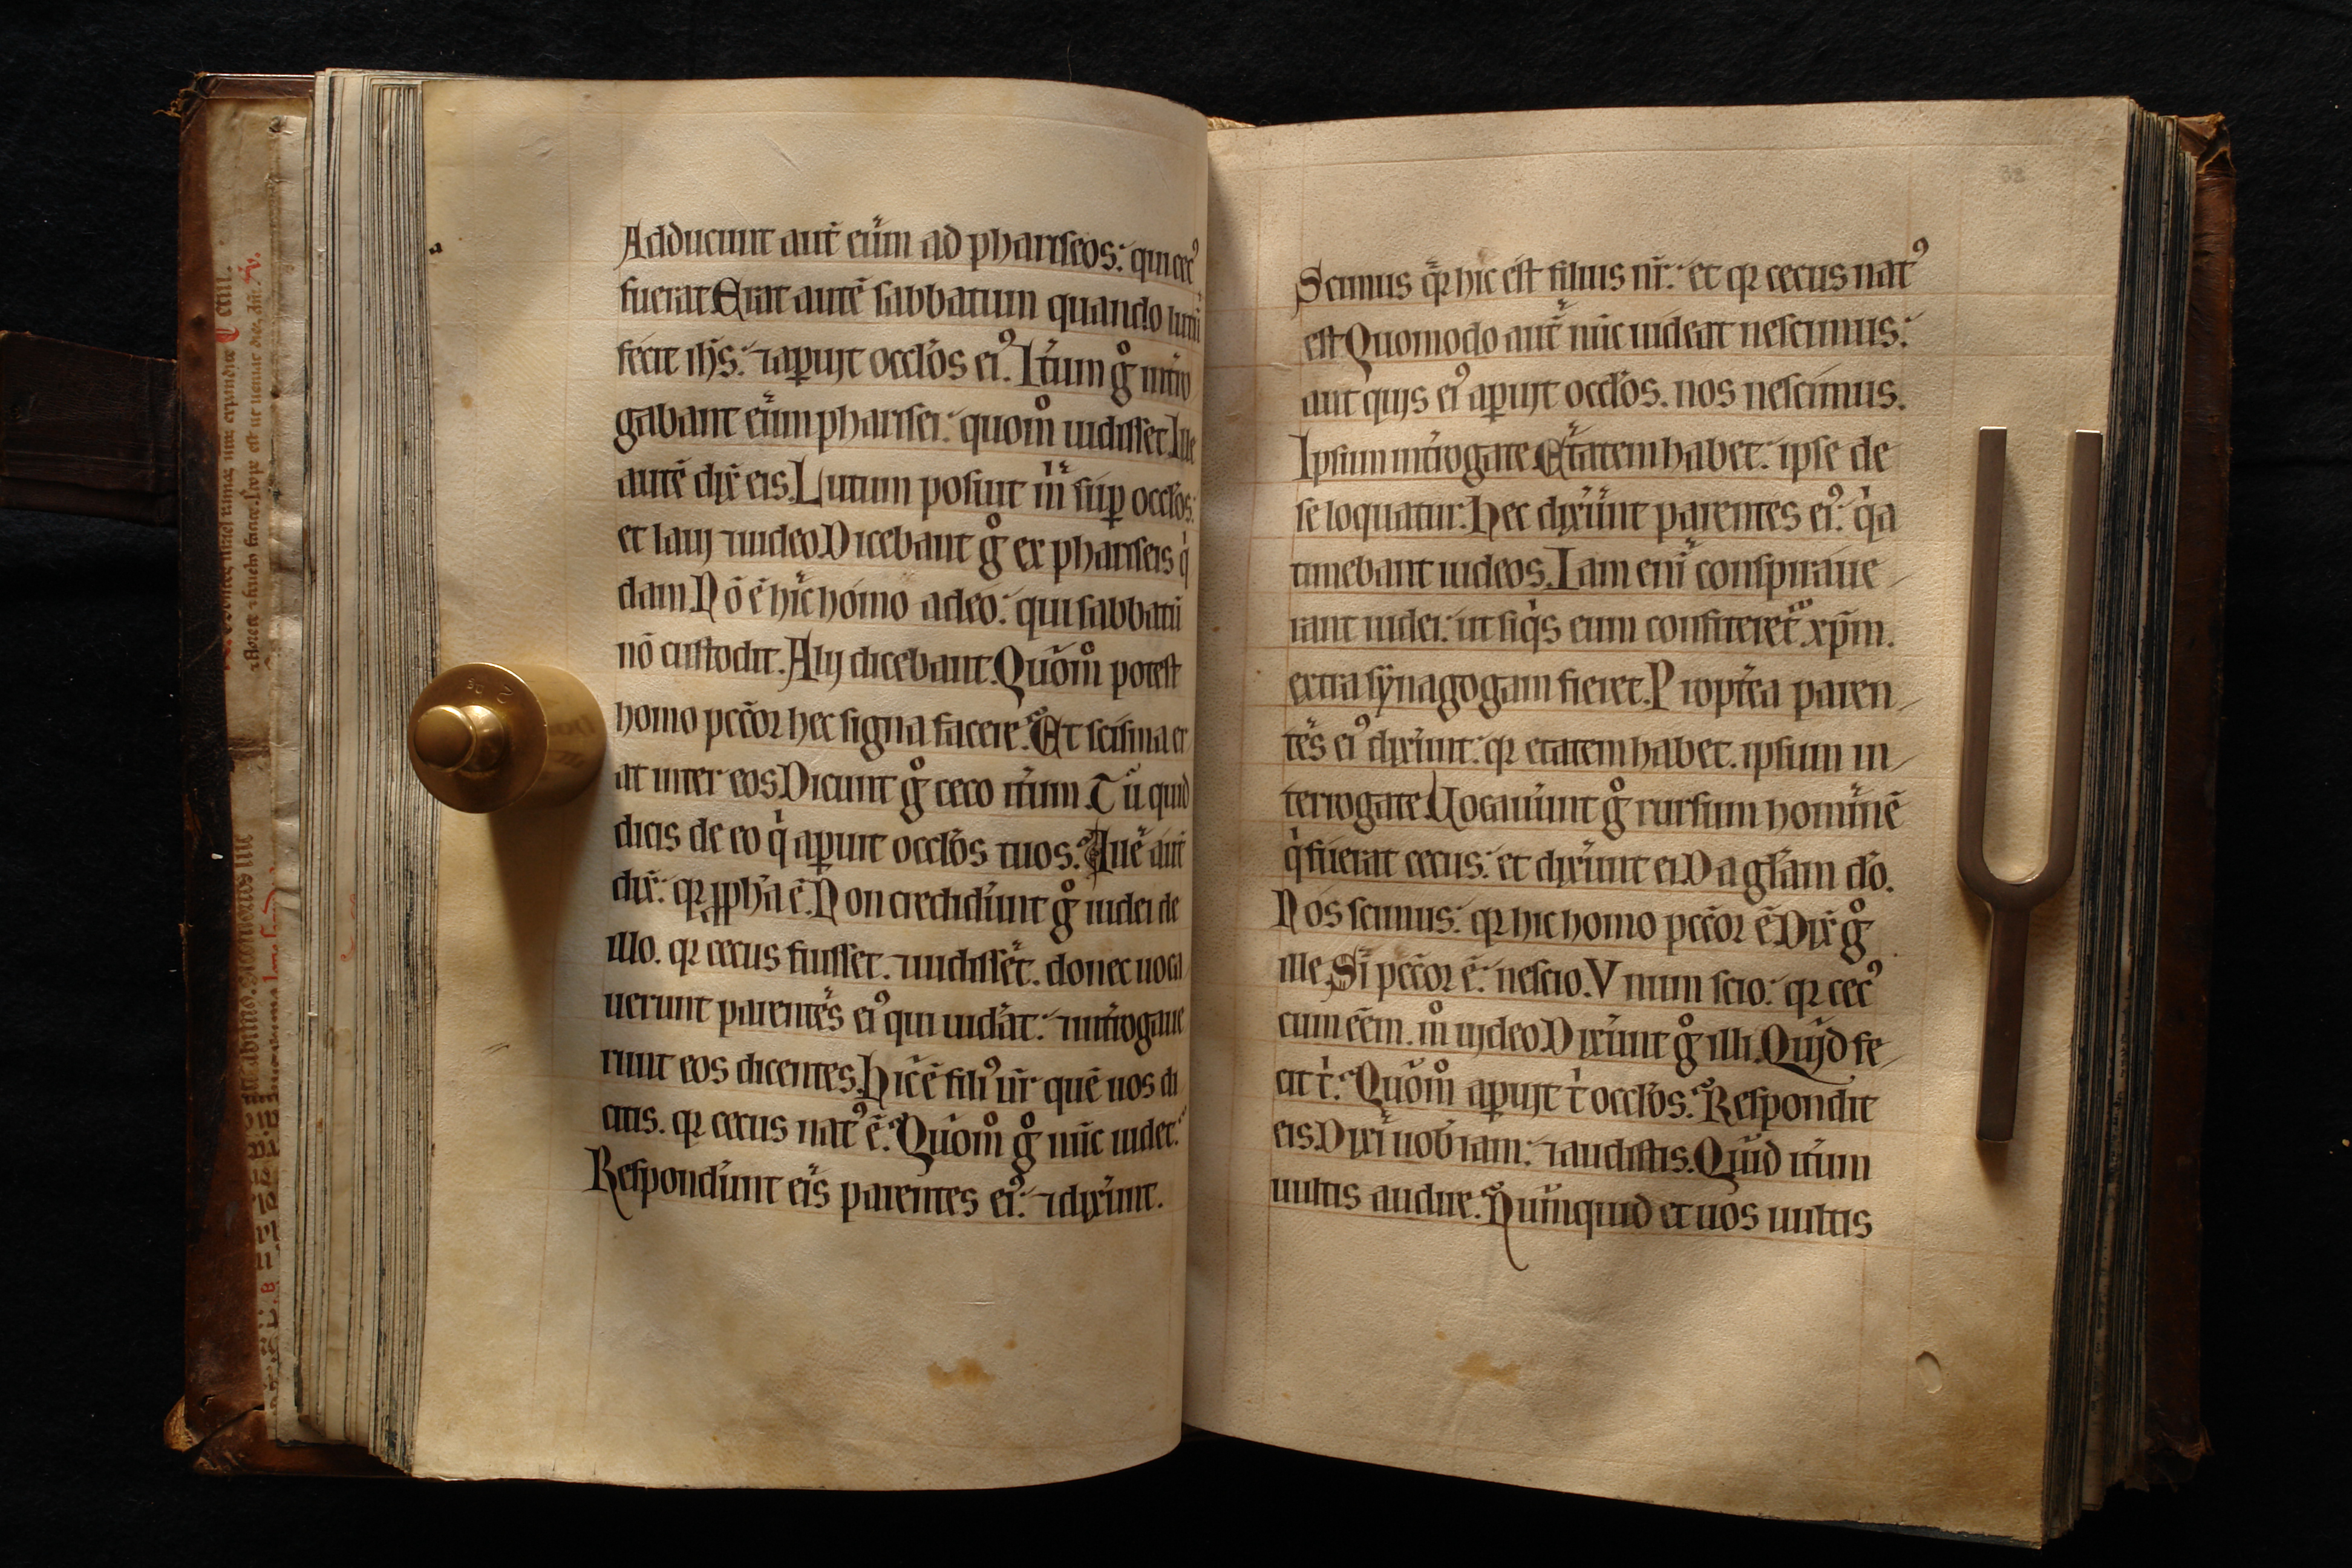 Adducunt aut̄ eum ad phariseos: qui cecꝰ
fuerat Erat autē sabbatum quando lutū
fecit ih̄s: ⁊ aꝑuit occl̄os eiꝰ. It̄um gͦ int̄ro
gabant eum pharisei: quom̊ uidisset Ille
autē dix̄ eis. Lutum posuit m̄ suꝑ occl̄os:
et laui ⁊ uideo Dicebant gͦ ex phariseis qͥ
dam. Nō ē hic homo adeo: qui sabbatū
nō custodit. Alij dicebant. Quom̊ potest
homo pcc̄or hec signa facere. Et scisma er
at inter eos Dicunt gͦ ceco it̄um. Tu quid
dicis de eo qͥ aꝑuit occl̄os tuos. Ille aut̄
dix̄: qꝛ ꝓph̄a ē. Non credidert̄ gͦ iudei de
illo. qꝛ cecus fuisset. ⁊ uidisset. donec uoca
uerunt parentes eiꝰ qui uid̄at: ⁊ int̄rogaue
runt eos dicentes. Hic ē filiꝰ ur̄ quē uos di
citis. qꝛ cecus natꝰ ē. Quom̊ gͦ nūc uidet:
Respond̄unt eis parentes eiꝰ: ⁊ dix̄unt.
Scimus qꝛ hic est filius nr̄: et qꝛ cecus natꝰ
est Quomodo aut̄ nūc uideat nescimus:
aut quis eiꝰ aꝑuit occl̄os. nos nescimus.
Ipsum int̄rogate Etatem habet: ipse de
se loquatur: Hec dix̄unt parentes eiꝰ: qͥa
timebant iudeos. Iam enī conspiraue
rant iudei: ut siqͥs eum confiteret̄ xp̄m.
extra synagogam fieret. Propt̄ea paren
tes eiꝰ dix̄unt: qꝛ etatem habet. ipsum in
terrogate Uocau̅unt gͦ rursum hominē
qͥ fuerat cecus: et dix̄unt ei. Da gl̄am dō.
Nos scimus: qꝛ hic homo pcc̄or ē Dix̄ gͦ
ille. Si pcc̄or ē: nescio. Vnum scio: qꝛ cecꝰ
cum eēm. m̊ uideo. Dix̄unt gͦ illi. Quid fe
cit t̄: Quom̊ aꝑuit t̄ occl̄os. Respondit
eis. Dixi uob̄ iam: ⁊ audistis. Quid it̄um
uultis audire. Numquid et uos uultis